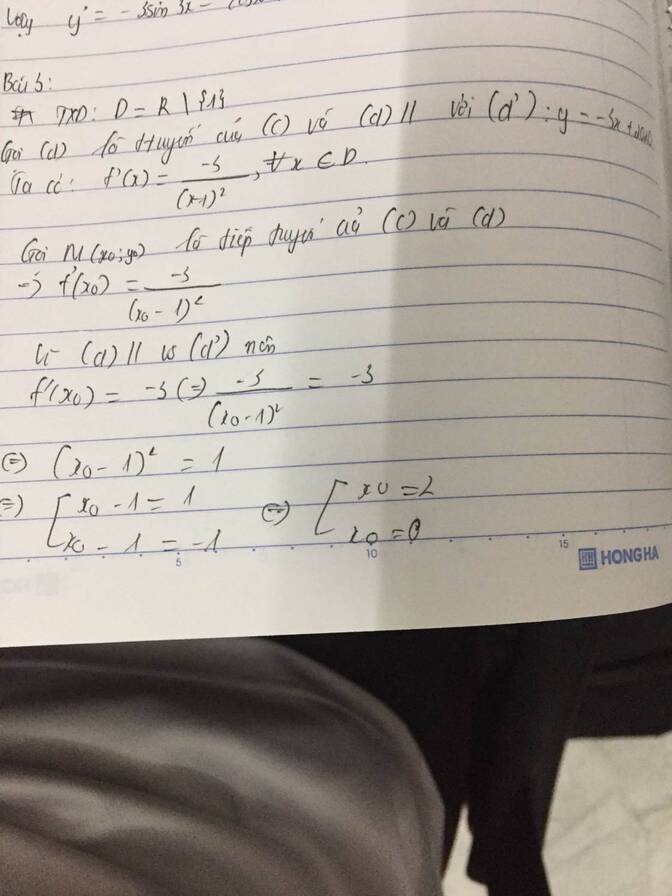 Vậy y' = - 3sin 3x -
Bài 3:
TXD: D = R \ {1}
Gọi (d) là tuyến của (C) và (d) // với (d'): y = -3x +
Ta có: f'(x) = -3/(x-1)², ∀x ∈ D.
Gọi M(x₀; y₀) là tiếp tuyến của (C) và (d)
=> f'(x₀) = -3/(x₀ - 1)²
Vì (d) // vs (d') nên
f'(x₀) = -3 (=) -3/(x₀ - 1)² = -3
(=) (x₀ - 1)² = 1
(=) [ x₀ - 1 = 1 (=) [ x₀ = 2
x₀ - 1 = -1 x₀ = 0
5 10 15 HONG HA